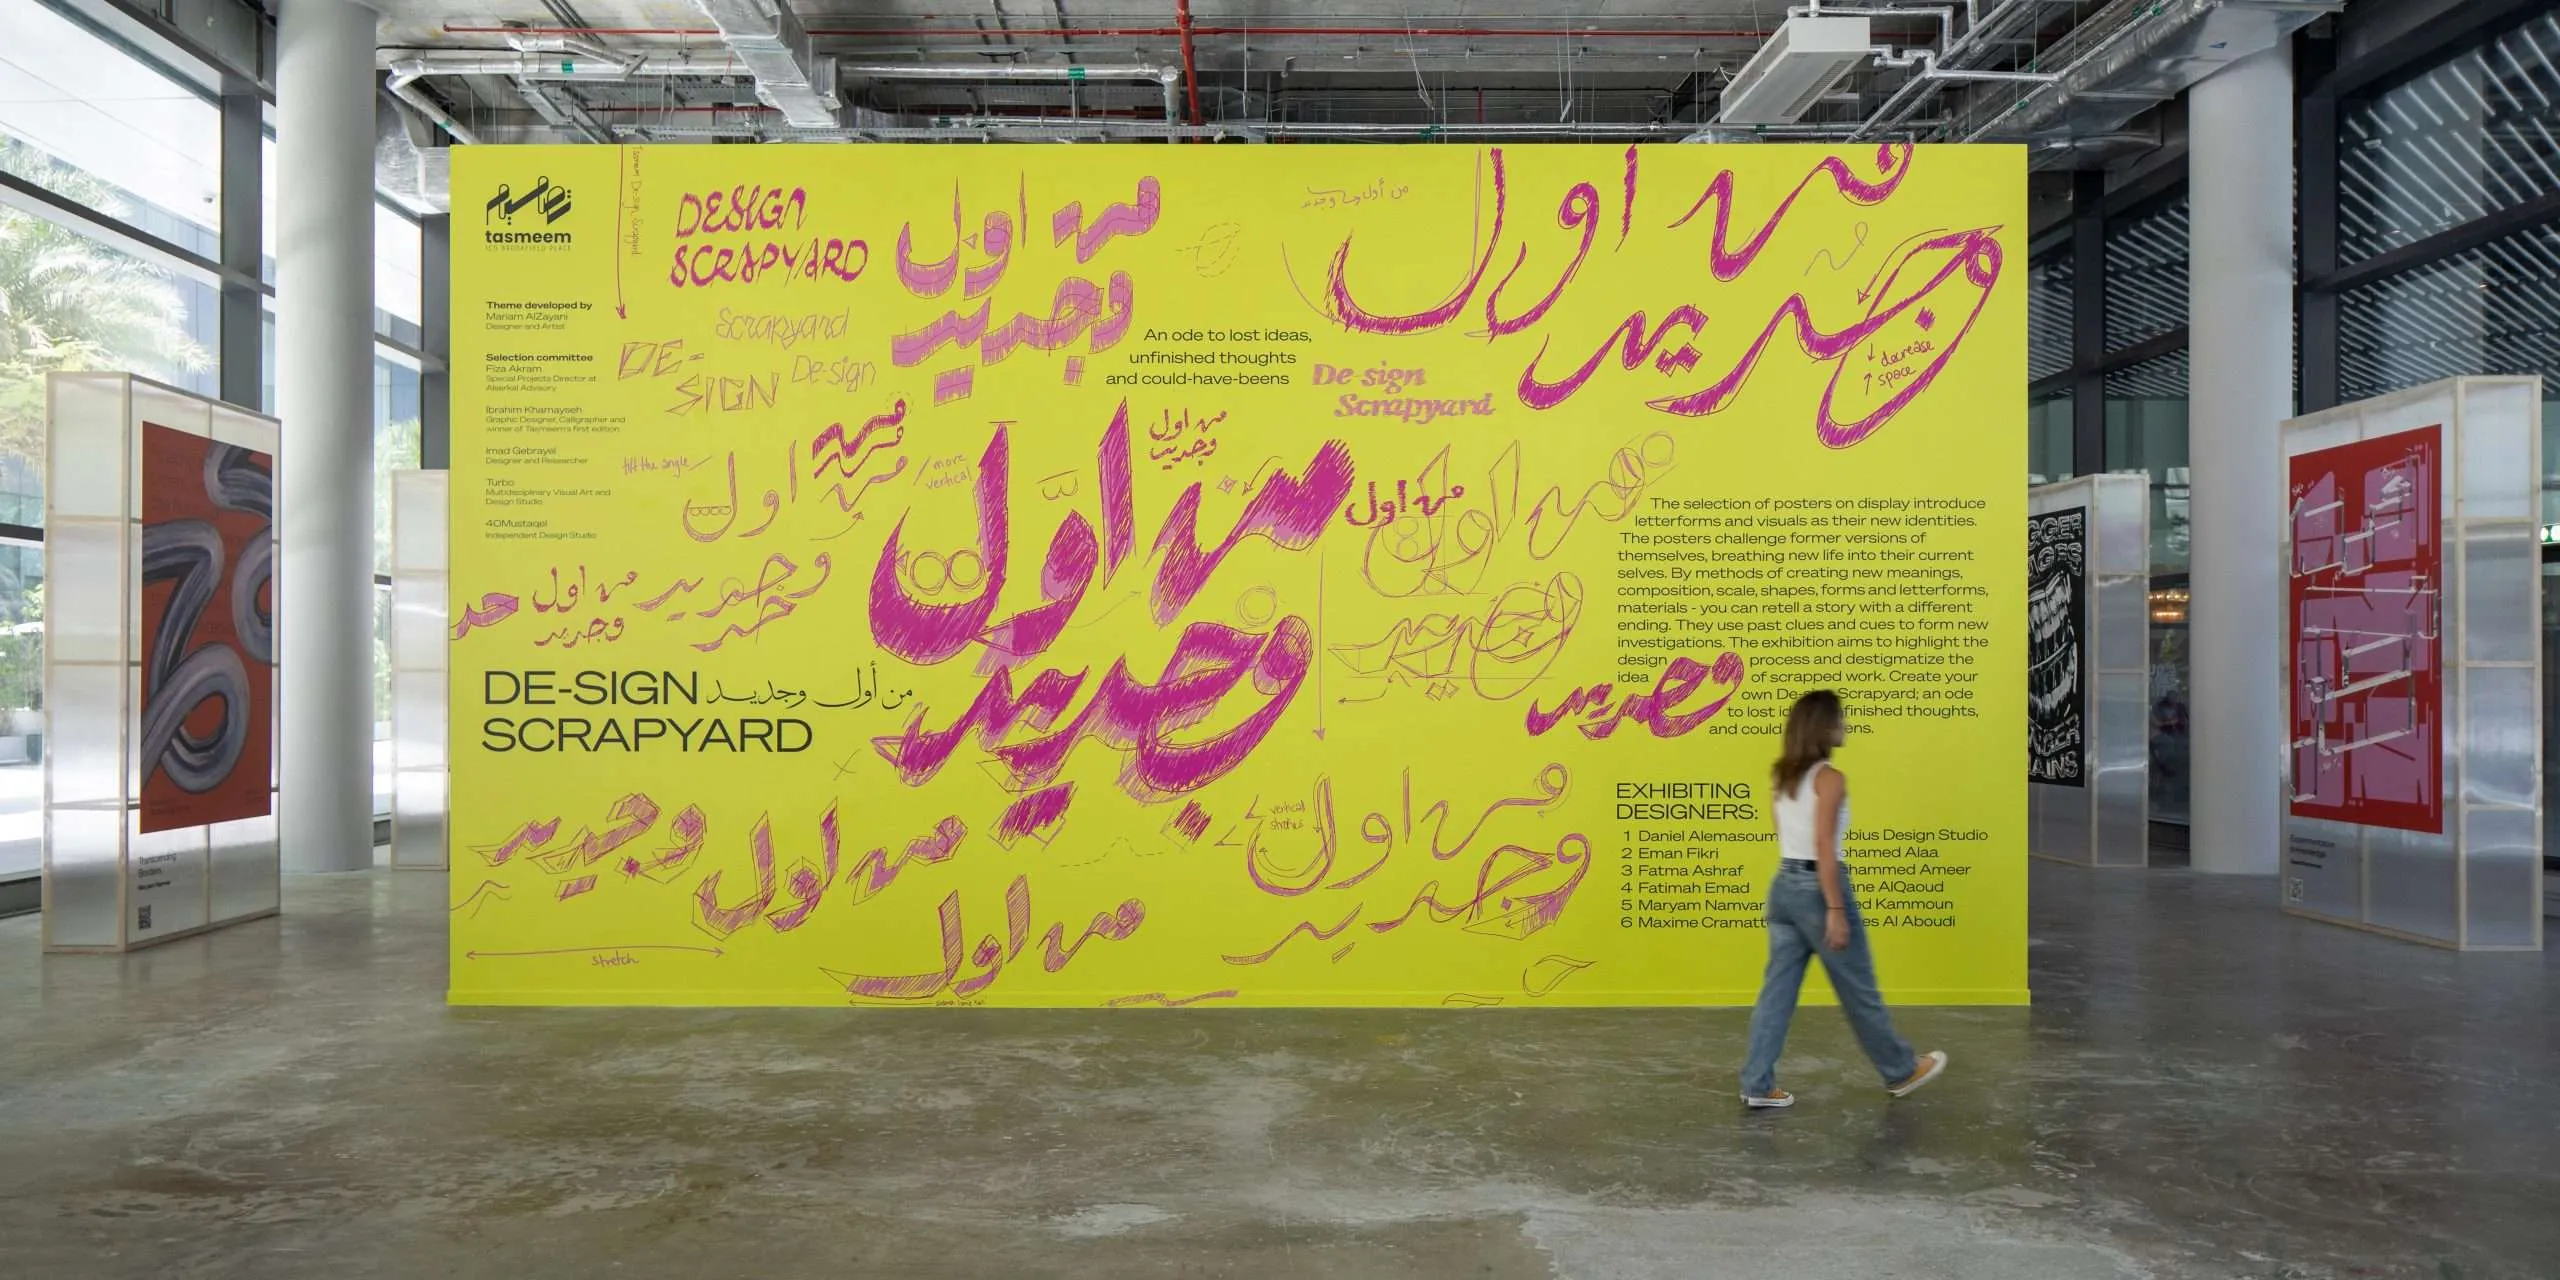 تصميم
tasmeem
ICD BROOKFIELD PLACE
Theme developed by
Mariam AlZayani
Designer and Artist
Selection committee
Fiza Akram
Special Projects Director at
Alserkal Advisory
Ibrahim Khamayseh
Graphic Designer, Calligrapher and
winner of Tasmeem's first edition
Imad Gebrayel
Designer and Researcher
Turbo
Multidisciplinary Visual Art and
Design Studio
40Mustaqel
Independent Design Studio
Tasmeem De-sign Scrapyard
DESIGN
SCRAPYARD
Scrapyard
DE-
SIGN
De-sign
من اول
وجديد
من أول وجديد
An ode to lost ideas,
unfinished thoughts
and could-have-beens
De-sign
Scrapyard
من اول
وجديد
decrease
space
tilt the angle
من اول
وجديد
more
vertical
من اول
وجديد
من اول
وجديد
من اول
من اول
وجديد
من اول
وجديد
DE-SIGN من أول وجديد
SCRAPYARD
The selection of posters on display introduce
letterforms and visuals as their new identities.
The posters challenge former versions of
themselves, breathing new life into their current
selves. By methods of creating new meanings,
composition, scale, shapes, forms and letterforms,
materials - you can retell a story with a different
ending. They use past clues and cues to form new
investigations. The exhibition aims to highlight the
design process and destigmatize the
idea of scrapped work. Create your
own De-sign Scrapyard; an ode
to lost unfinished thoughts,
and could
وجديد
EXHIBITING
DESIGNERS:
1 Daniel Alemasoum
2 Eman Fikri
3 Fatma Ashraf
4 Fatimah Emad
5 Maryam Namvar
6 Maxime
Design Studio
Mohamed Alaa
Mohammed Ameer
AlQaoud
Kammoun
Al Aboudi
من اول وجديد
vertical
من اول
وجديد
stretch
من اول
Transcending
Borders